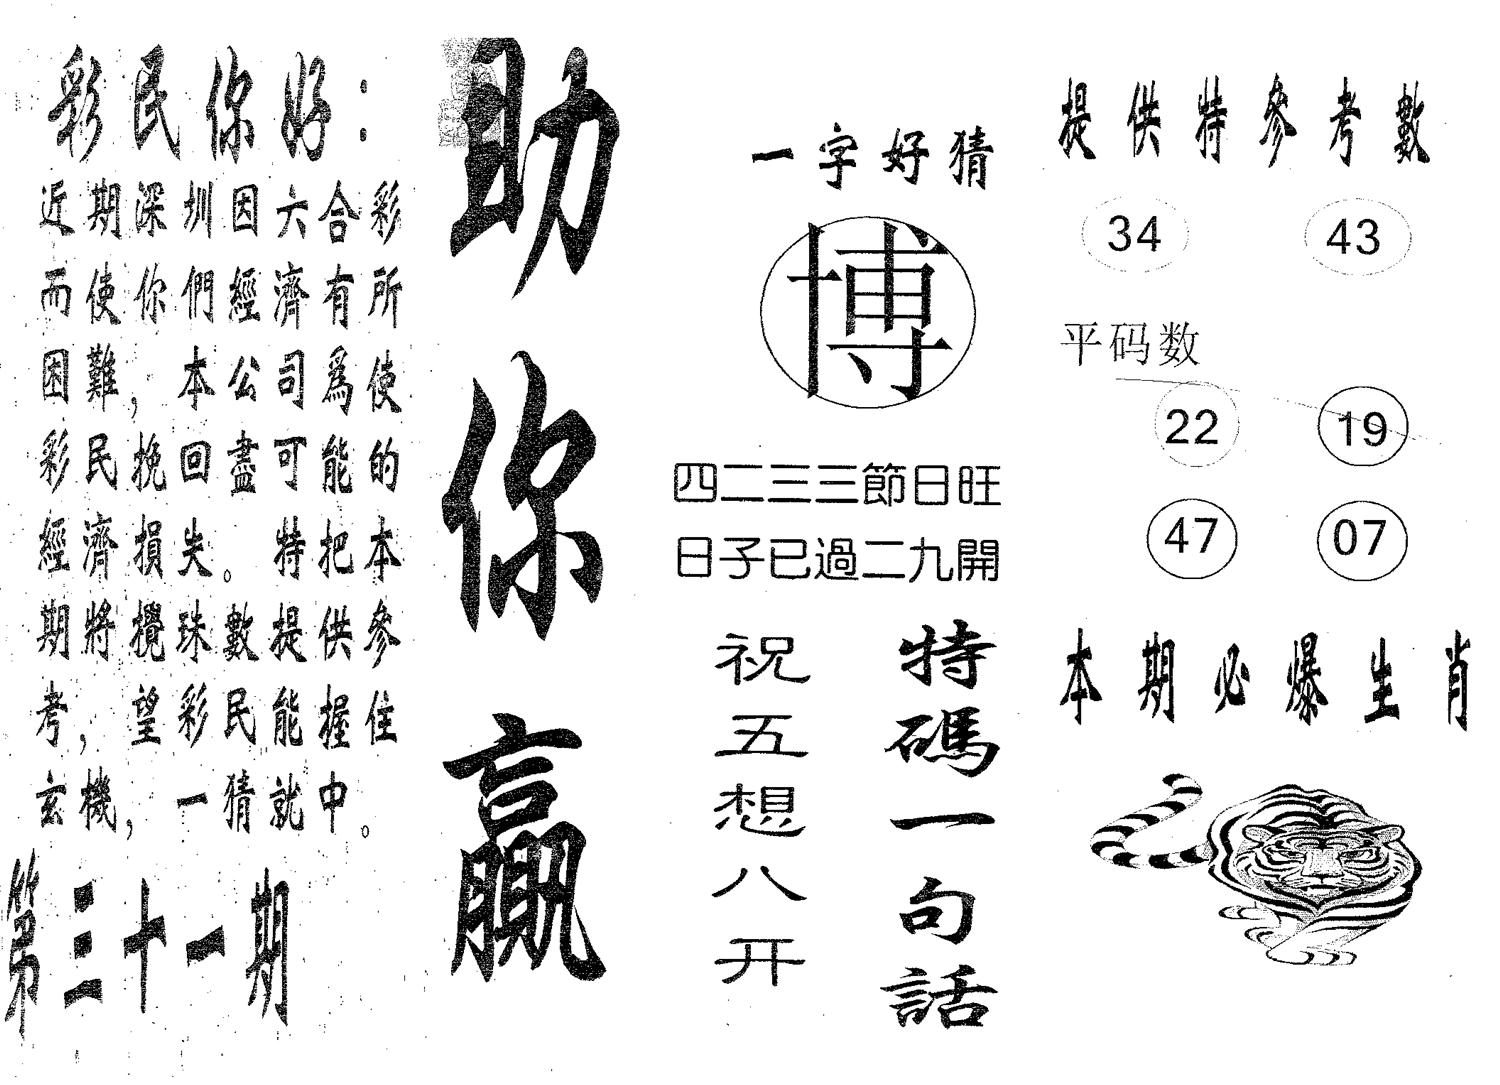 彩民你好：
近期深圳因六合彩
而使你們經濟有所
困難，本公司爲使
彩民挽回盡可能的
經濟損失。特把本
期將攪珠數提供參
考，望彩民能握住
玄機，一猜就中。
第三十一期
助你贏
一字好猜
博
四二三三節日旺
日子已過二九開
特碼一句話
祝五想八开
提供特參考數
34 43
平码数
22 19
47 07
本期必爆生肖